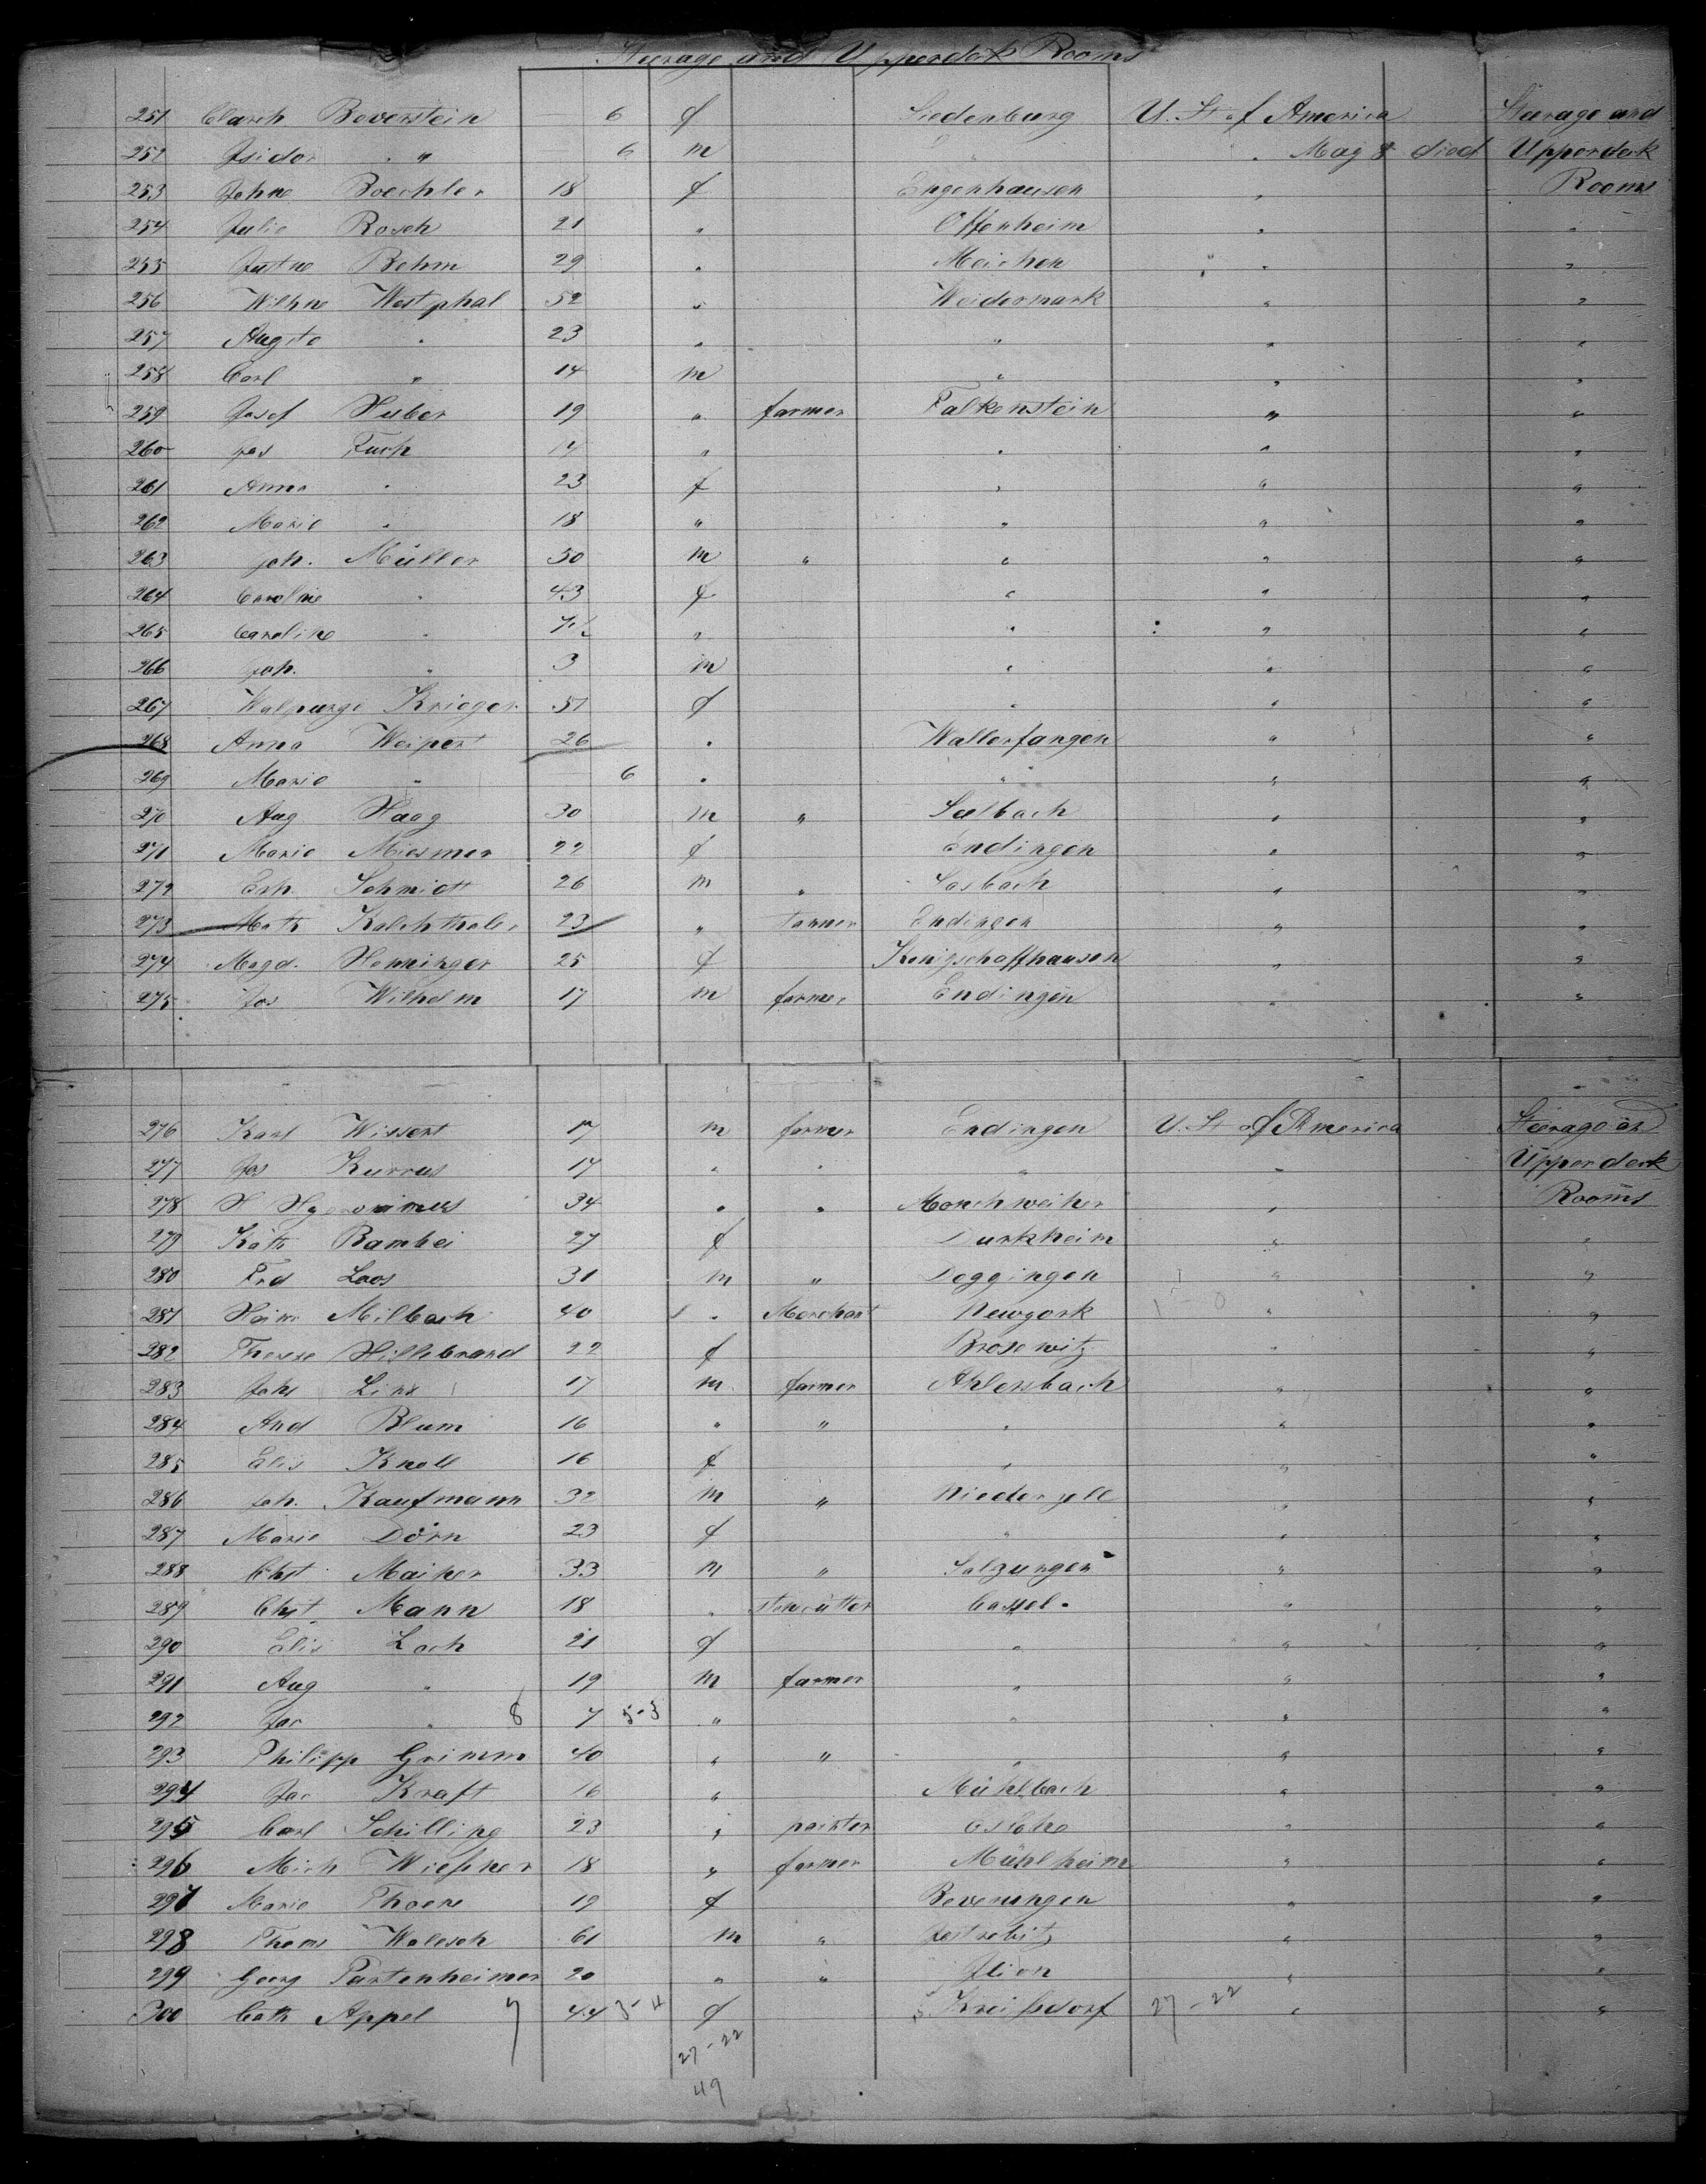 Steerage and Upperdeck Rooms
251 Clarch Beverstein 6 f Siedenburg U. St of America Steerage and
252 Isidor " 6 m " May 8 died Upperdeck
253 Johne Boechler 18 f Engenhausen " Rooms
254 Julie Rosch 21 " Offenheim " "
255 Justne Behm 29 " Meichen " "
256 Wilhne Westphal 52 " Weidermark " "
257 Augste " 23 " " " "
258 Carl " 14 m " " "
259 Josef Huber 19 " farmer Falkenstein " "
260 Jos Fuch 14 " " " "
261 Anna " 23 f " " "
262 Marie " 18 " " " "
263 Joh. Müller 50 m " " " "
264 Caroline " 43 f " " "
265 Caroline " 7½ " " " "
266 Joh. " 3 m " " "
267 Walpurge Krieger 51 f " " "
268 Anna Weipert 26 " Wallerfangen " "
269 Marie " 6 " " " "
270 Aug Haag 30 m " Seelbach " "
271 Marie Miesmer 22 f Endingen " "
272 Erh. Schmidt 26 m " Sasbach " "
273 Math Kalchthaler 23 " tanner Endingen " "
274 Magd. Henninger 25 f Konigschaffhausen " "
275 Jos Wilhelm 17 m farmer Endingen " "
276 Karl Wissert 17 m farmer Endingen U. St of America Steerage an
277 Jos Kurrus 17 " " " " Upperdeck
278 H Hyeronimus 34 " " Monchweiher " Rooms
279 Kath Bambei 27 f Durkheim " "
280 Frd Laos 31 m " Doggingen " "
281 Heim Milbach 40 " Merchant Newyork 1-0 " "
282 Therese Hillebrand 22 f Brosewitz " "
283 Johs Link 17 m farmer Ahlersbach " "
284 And Blum 16 " " " " "
285 Elis Knoll 16 f " " "
286 Joh. Kaufmann 32 m " Niederzell " "
287 Marie Dörn 23 f " " "
288 Chst Maiher 33 m " Salzungen " "
289 Chst Mann 18 " stoncutter Cassel " "
290 Elis Loch 21 f " " "
291 Aug " 19 m farmer " " "
292 Jac " 8 7 5-3 " " " "
293 Philipp Grimm 40 " " " " "
294 Jac Kraft 16 " Mühlbach " "
295 Carl Schilling 23 " painter " "
296 Mich Wießner 18 " farmer Mühlheim " "
297 Marie Thoene 19 f Beverungen " "
298 Thoms Walesch 61 m " Jestrebitz " "
299 Georg Partenheimer 20 " " Ilion " "
300 Cath Appel 7 44 3-4 f Kreißdorf 27-22 " "
27-22
49